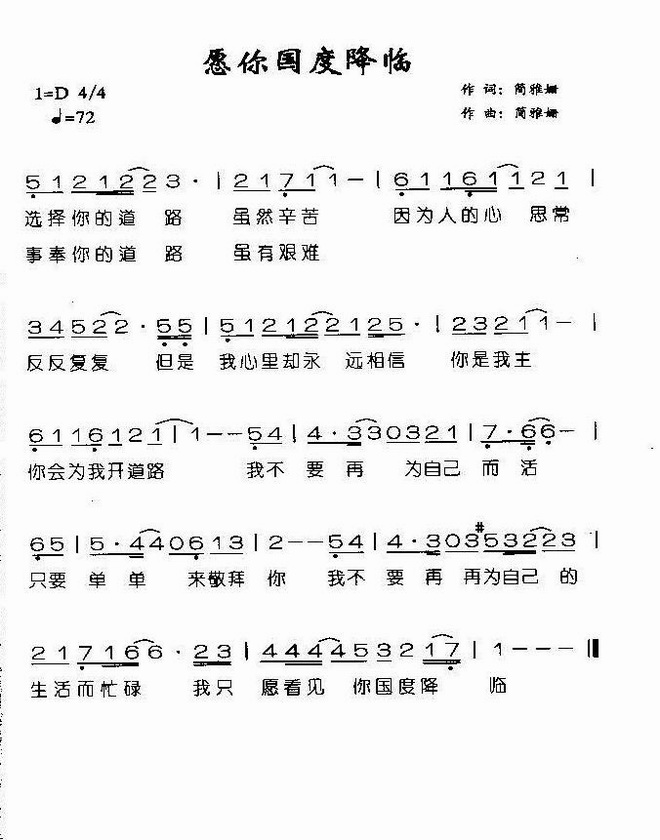 愿你国度降临
1=D 4/4
作 词：简雅姗
♩=72
作 曲：简雅姗
5 1 2 1 2 2 2 3 · | 2 1 7 1 1 — | 6 1 1 6 1 1 2 1 |
选择你的道 路 虽然辛苦 因为人的心 思常
事奉你的道 路 虽有艰难
3 4 5 2 2 · 5 5 | 5 1 2 1 2 2 1 2 5 · | 2 3 2 1 1 — |
反反复复 但是 我心里却永 远相信 你是我主
6 1 1 6 1 2 1 | 1 — — 5 4 | 4 · 3 3 0 3 2 1 | 7 · 6 6 — |
你会为我开道路 我不 要 再 为自己 而 活
6 5 | 5 · 4 4 0 6 1 3 | 2 — — 5 4 | 4 · 3 0 3 #5 3 2 2 3 |
只要 单 单 来敬拜 你 我不 要 再 再为自己 的
2 1 7 1 6 6 · 2 3 | 4 4 4 4 5 3 2 1 7 | 1 — — — ‖
生活而忙碌 我只 愿看见 你国度降 临